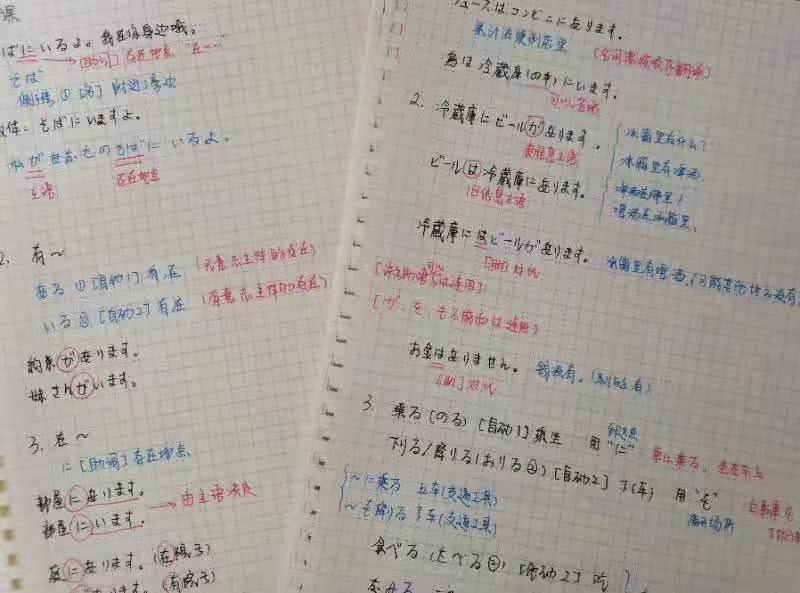 课
ばにいるよ。我在你身边哦。
[助词] 存在地点 "在……
そば
側 ① [名] 附近;旁边
そばにいますよ。
私があなたのそばにいるよ。
主语 存在地点
2. 有~
ある ① [自动1] 有,在 (无意志主体的存在)
いる ⓪ [自动2] 有,在 (有意志主体的存在)
約束があります。
妹さんがいます。
3. 在~
に [助词] 存在地点
部屋にあります。
部屋にいます。 → 由主语决定
庭にあります。(在院子)
(有院子)
ュースはコンビニにあります。
果汁在便利店里
鳥は冷蔵庫(の中)にいます。
可以省略
2. 冷蔵庫にビールがあります。
新信息主语
冰箱里有什么?
冰箱里有啤酒.
ビールは冷蔵庫にあります。
旧信息主语
啤酒在哪里?
啤酒在冰箱里.
冷蔵庫にはビールがあります。 冰箱里有啤酒,(可能其他地方没有)
[助] 对比
お金はありません。 钱没有。(别的有)
[助] 对比
3. 乗る (のる) [自动1] 乘坐 用 "に" 車に乗る。坐在车上
下りる/降りる (おりる②) [自动2] 下(车) 用 "を" 自転車を
离开场所
~に乗る 上车(交通工具)
~を降りる 下车(交通工具)
食べる (たべる②) [他动2] 吃